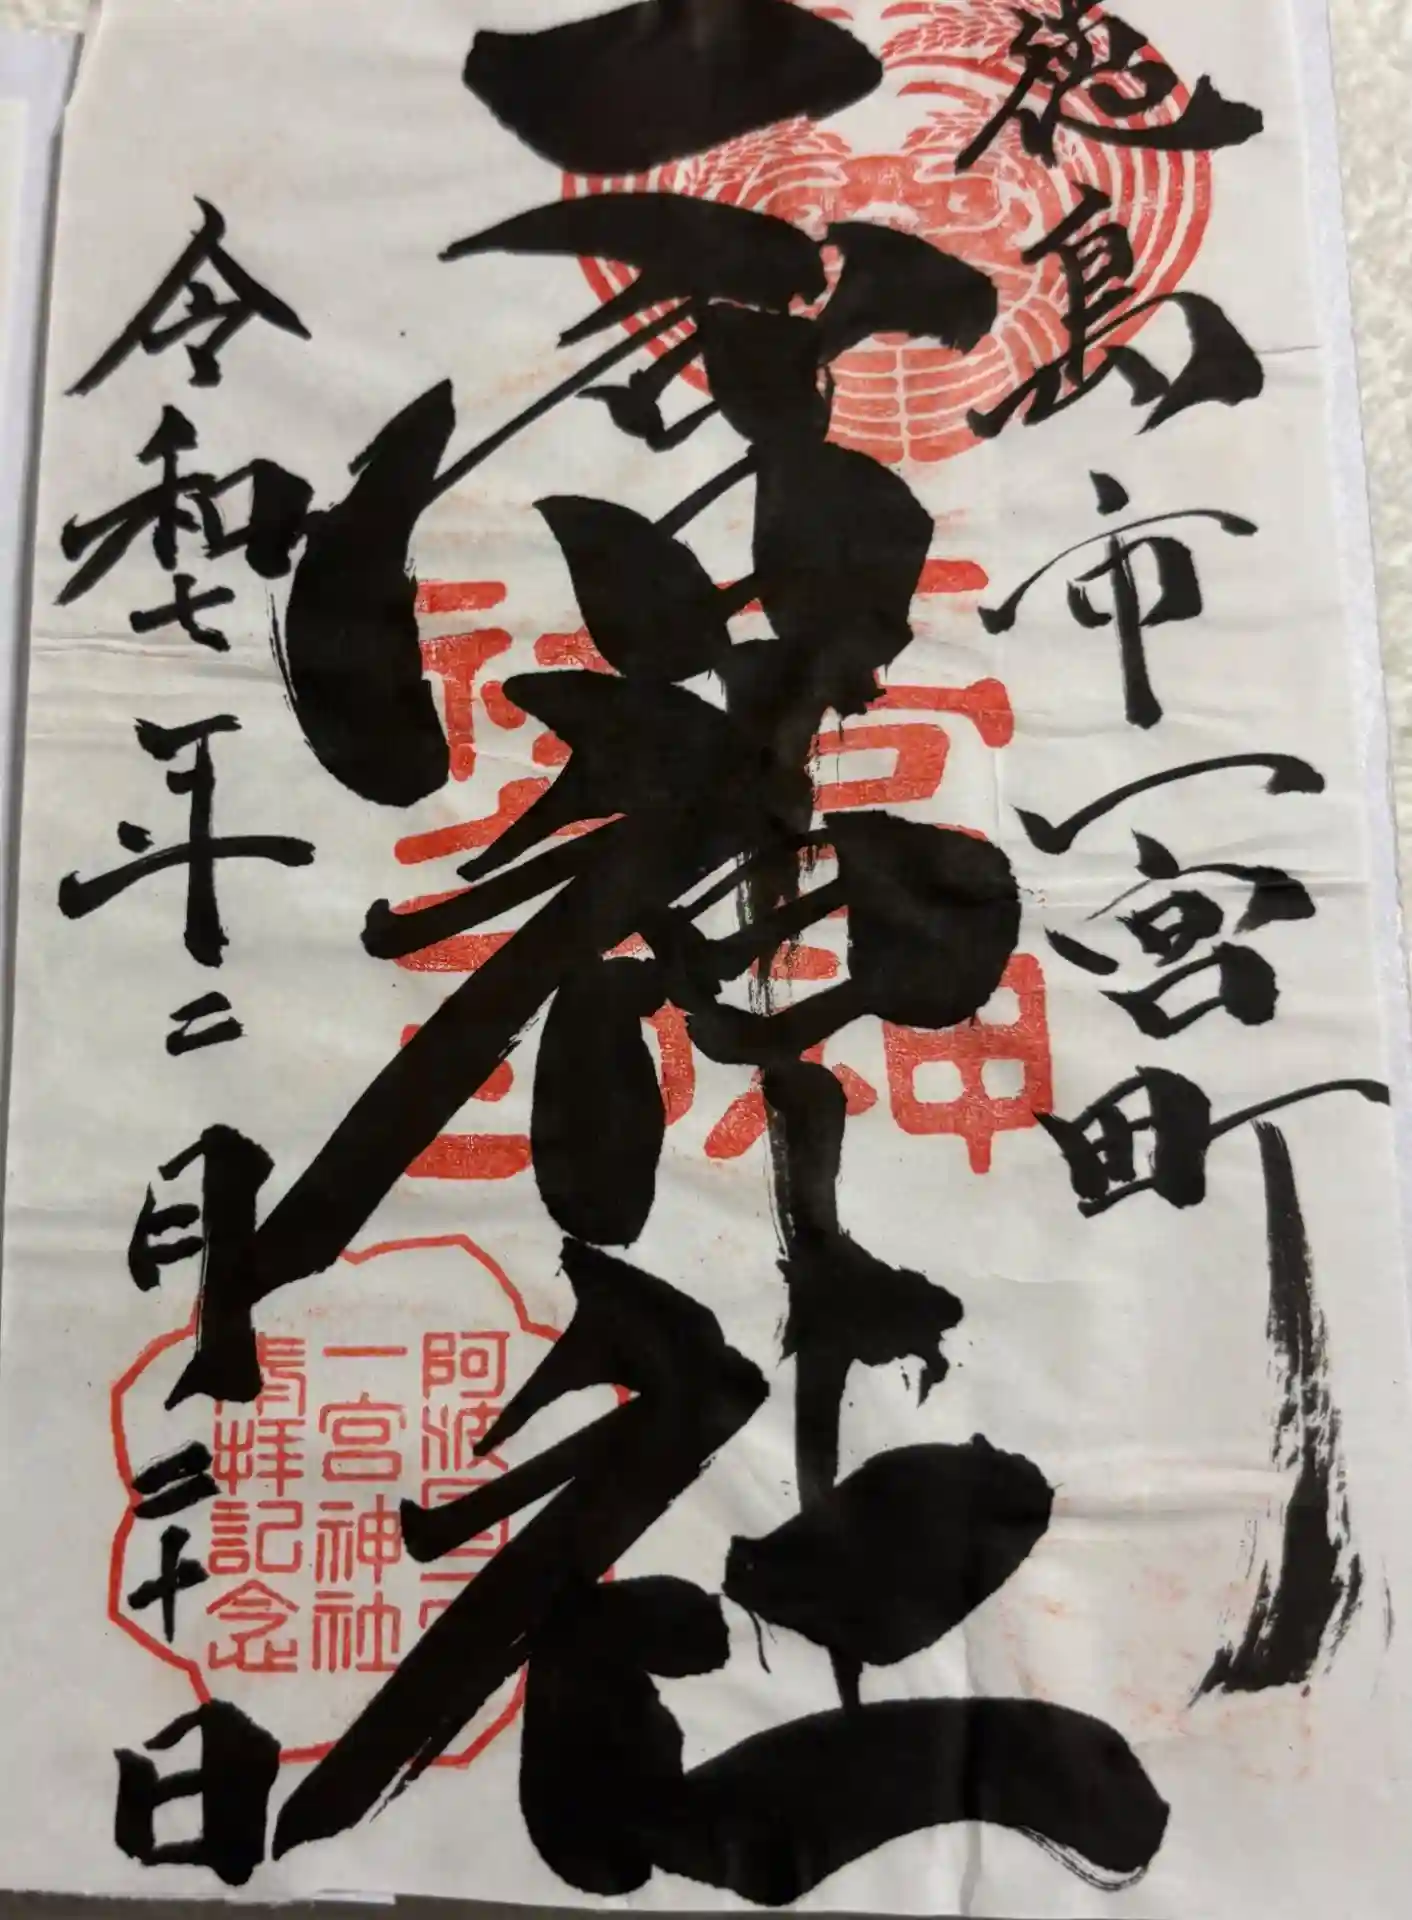 徳島市一宮町
一宮神社
令和七年二月二十日
阿波国一
一宮神社
拝記念